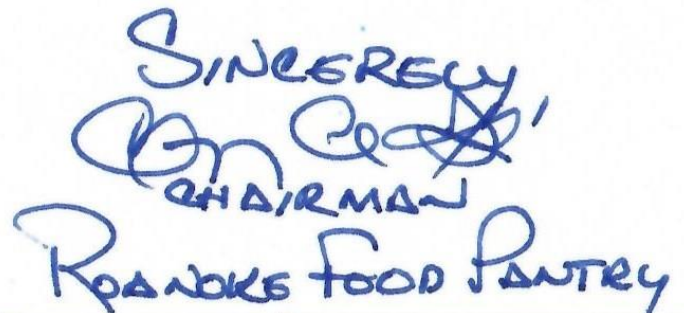 SINCERELY,
CHAIRMAN
ROANOKE FOOD PANTRY